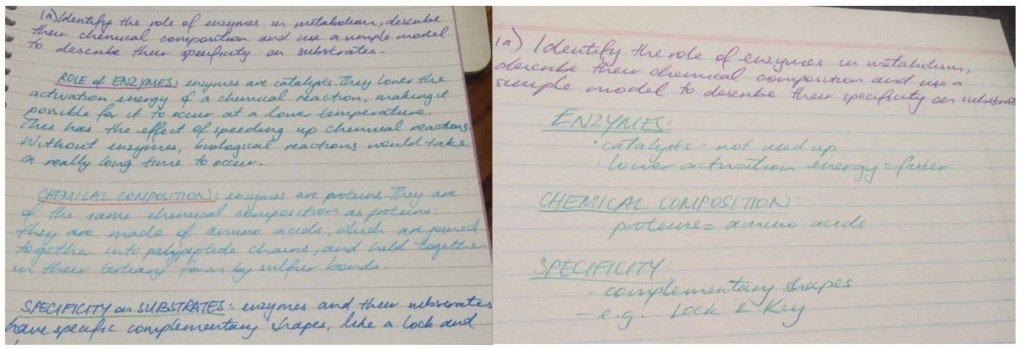 1a) Identify the role of enzymes in metabolism, describe
their chemical composition and use a simple model
to describe their specificity on substrates.
ROLE of ENZYMES: enzymes are catalysts. They lower the
activation energy of a chemical reaction, making it
possible for it to occur at a lower temperature.
This has the effect of speeding up chemical reactions.
Without enzymes, biological reactions would take
a really long time to occur.
CHEMICAL COMPOSITION: enzymes are proteins. They are
of the same chemical composition as proteins:
they are made of amino acids, which are joined
together into polypeptide chains, and held together
in their tertiary form by sulfur bonds.
SPECIFICITY on SUBSTRATES: enzymes and their substrates
have specific complementary shapes, like a lock and
1a) Identify the role of enzymes in metabolism,
describe their chemical composition and use a
simple model to describe their specificity on substrat
ENZYMES:
· catalysts = not used up
· lower activation energy = faster
CHEMICAL COMPOSITION:
proteins = amino acids
SPECIFICITY:
- complementary shapes
- e.g. Lock & Key